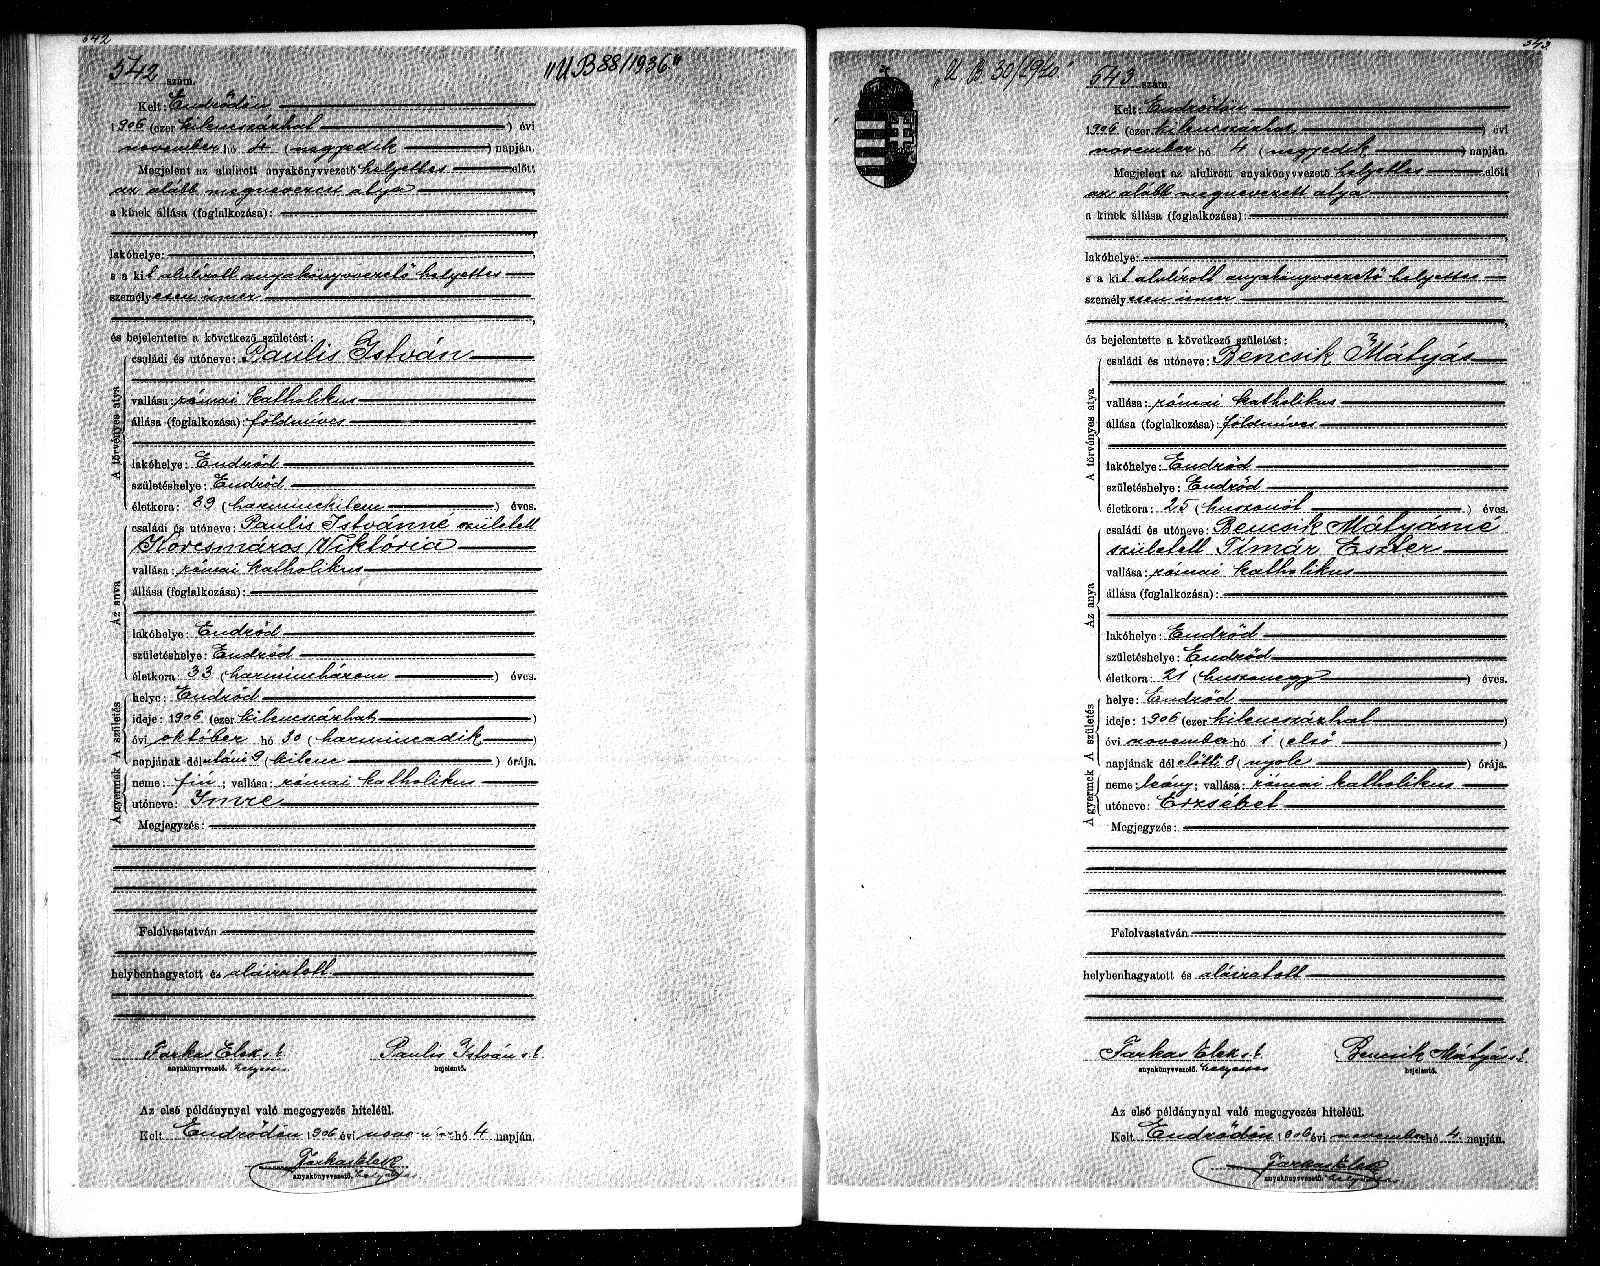 542
542 szám.
„UB 88/1936."
Kelt: Endrődön
1906 (ezer kilenczszázhat ) évi
november hó 4 (negyedik ) napján.
Megjelent az alulirott anyakönyvvezető helyettes előtt
az alább megnevezett atya
a kinek állása (foglalkozása):
lakóhelye:
s a kit alulírott anyakönyvvezető helyettes
személyesen ismer
és bejelentette a következő születést:
A törvényes atya
családi és utóneve: Paulis István
vallása: római katholikus
állása (foglalkozása): földmíves
lakóhelye: Endrőd
születéshelye: Endrőd
életkora: 39 (harminckilenc ) éves.
Az anya
családi és utóneve: Paulis Istvánné született
Korcsmáros Viktória
vallása: római katholikus
állása (foglalkozása):
lakóhelye: Endrőd
születéshelye: Endrőd
életkora: 33 (harminchárom ) éves.
A születés
helye: Endrőd
ideje: 1906 (ezer kilenczszázhat )
évi október hó 30 (harmincadik )
napjának délutáni 9 (kilenc ) órája.
A gyermek
neme: fiú; vallása: római katholikus
utóneve: Imre
Megjegyzés:
Felolvastatván
helybenhagyatott és aláiratott
Farkas Elek s.k. Paulis István s.k.
anyakönyvvezető. helyettes bejelentő.
Az első példánynyal való megegyezés hiteléül.
Kelt Endrődön 1906 évi november hó 4 napján.
Farkas Elek
anyakönyvvezető. helyettes
543
„U B 30/1940."
543 szám.
Kelt: Endrődön
1906 (ezer kilenczszázhat ) évi
november hó 4 (negyedik ) napján.
Megjelent az alulirott anyakönyvvezető helyettes előtt
az alább megnevezett atya
a kinek állása (foglalkozása):
lakóhelye:
s a kit alulírott anyakönyvvezető helyettes
személyesen ismer
és bejelentette a következő születést:
A törvényes atya
családi és utóneve: Bencsik Mátyás
vallása: római katholikus
állása (foglalkozása): földmíves
lakóhelye: Endrőd
születéshelye: Endrőd
életkora: 25 (huszonöt ) éves.
Az anya
családi és utóneve: Bencsik Mátyásné
született Tímár Eszter
vallása: római katholikus
állása (foglalkozása):
lakóhelye: Endrőd
születéshelye: Endrőd
életkora: 21 (huszonegy ) éves.
A születés
helye: Endrőd
ideje: 1906 (ezer kilenczszázhat )
évi november hó 1 (első )
napjának délelőtti 8 (nyolc ) órája.
A gyermek
neme: leány; vallása: római katholikus
utóneve: Erzsébet
Megjegyzés:
Felolvastatván
helybenhagyatott és aláiratott
Farkas Elek s.k. Bencsik Mátyás s.k.
anyakönyvvezető. helyettes bejelentő.
Az első példánynyal való megegyezés hiteléül.
Kelt Endrődön 1906 évi november hó 4 napján.
Farkas Elek
anyakönyvvezető. helyettes